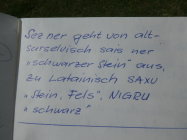 Sezner geht von alt-
surselvisch sais ner
"schwarzer Stein" aus,
zu Latainisch SAXU
"Stein, Fels", NIGRU
"schwarz"